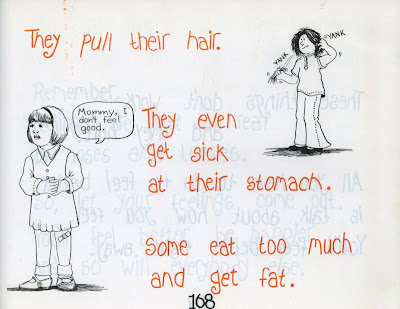 They pull their hair.
YANK
YANK
Mommy, I
don't feel
good.
They even
get sick
at their stomach.
Some eat too much
and get fat.
168